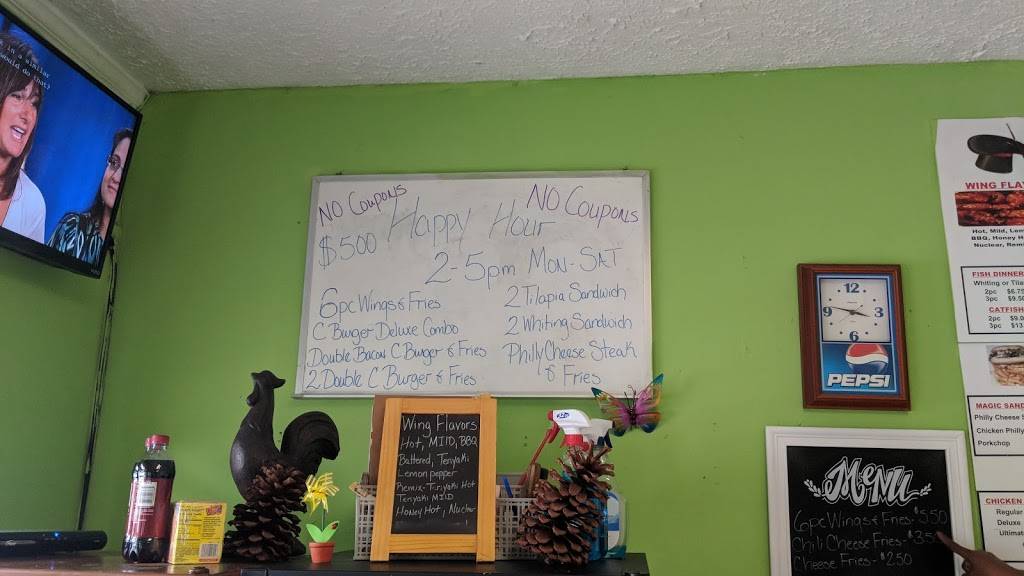 NO COUPONS
NO COUPONS
Happy Hour
$500
2-5pm MON-SAT
6pc Wings & Fries
C Burger Deluxe Combo
Double Bacon C Burger & Fries
2 Double C Burger & Fries
2 Tilapia Sandwich
2 Whiting Sandwich
Philly Cheese Steak
& Fries
Wing Flavors
Hot, MILD, BBQ
Battered, Teriyaki
Lemon pepper
Remix-Tiriyaki Hot
Teriyaki MILD
Honey Hot, Nuclear
12
9
3
6
PEPSI
MENU
6pc Wings & Fries-$5.50
Chili Cheese Fries-$3.50
Cheese Fries-$2.50
WING FLA
Hot, Mild, Lem
BBQ, Honey H
Nuclear, Remi
FISH DINNER
Whiting or Tila
2pc $6.75
3pc $9.50
CATFISH
2pc $9.0
3pc $13
MAGIC SAND
Philly Cheese S
Chicken Philly
Porkchop
CHICKEN
Regular
Deluxe
Ultimat